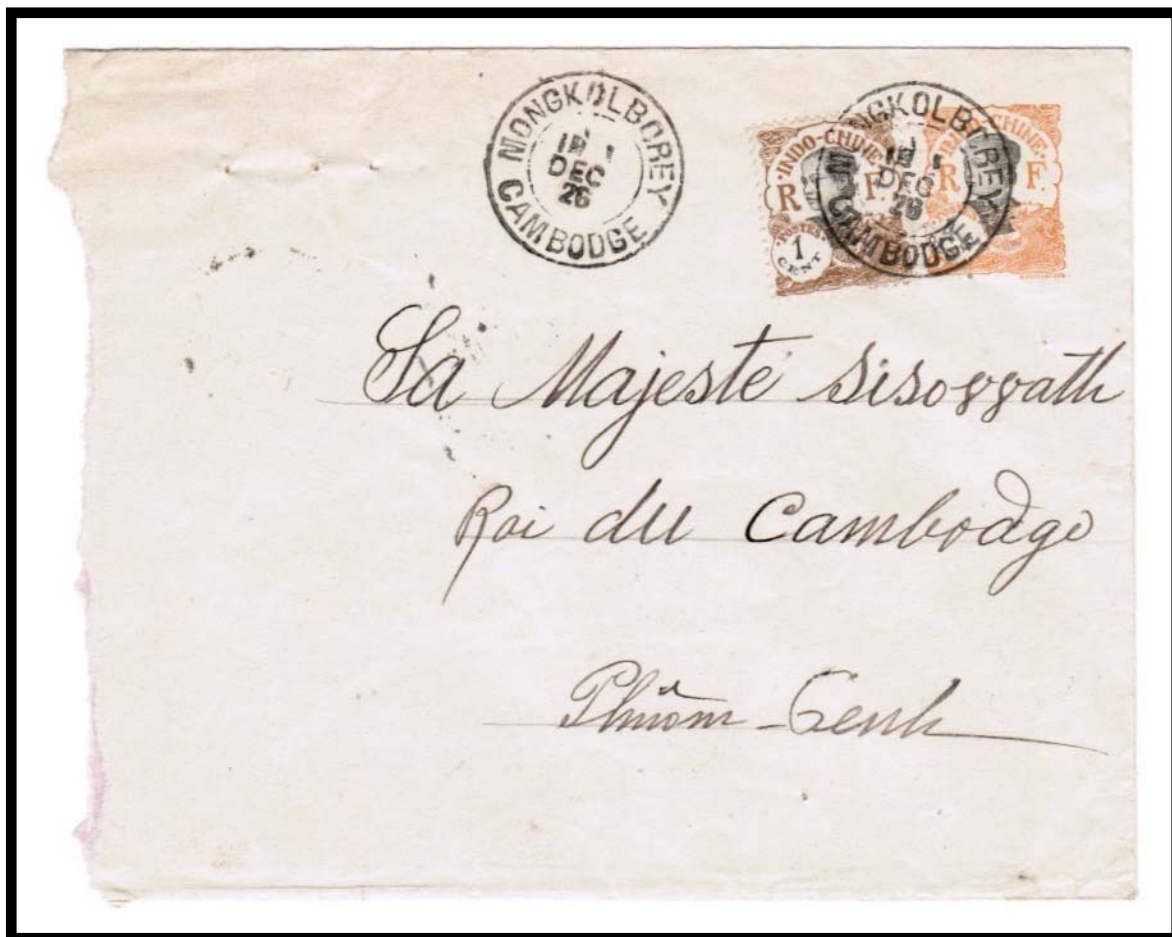 MONGKOLBOREY
18 1
DEC
26
CAMBODGE
INDO-CHINE
R F
POSTES
1
CENT
MONGKOLBOREY
18 1
DEC
26
CAMBODGE
CHINE
R F.
Sa Majesté Sisowath
Roi du Cambodge
Phnôm-Penh